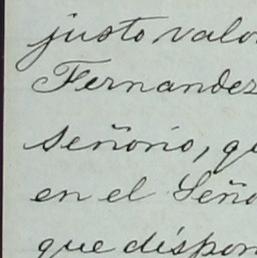 justo valo
Fernandez
señorio, qu
en el Seño
que dispon